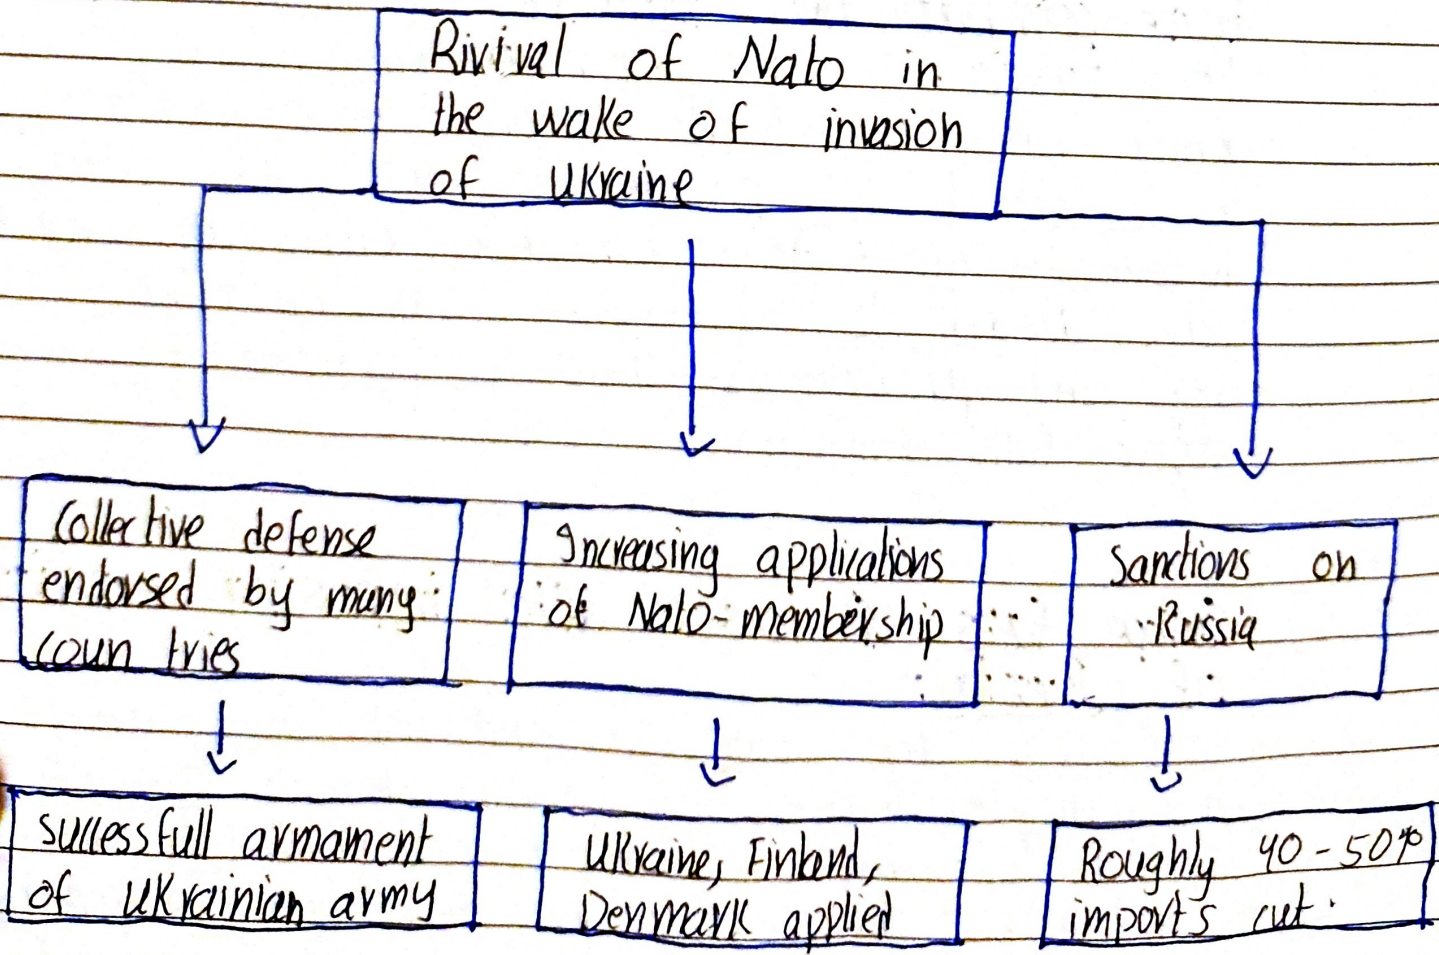 Rivival of Nato in
the wake of invasion
of Ukraine
Collective defense
endorsed by many
coun tries
Increasing applications
of Nato-membership
Sanctions on
Russia
Successfull armament
of Ukrainian army
Ukraine, Finland,
Denmark applied
Roughly 40-50%
imports cut.